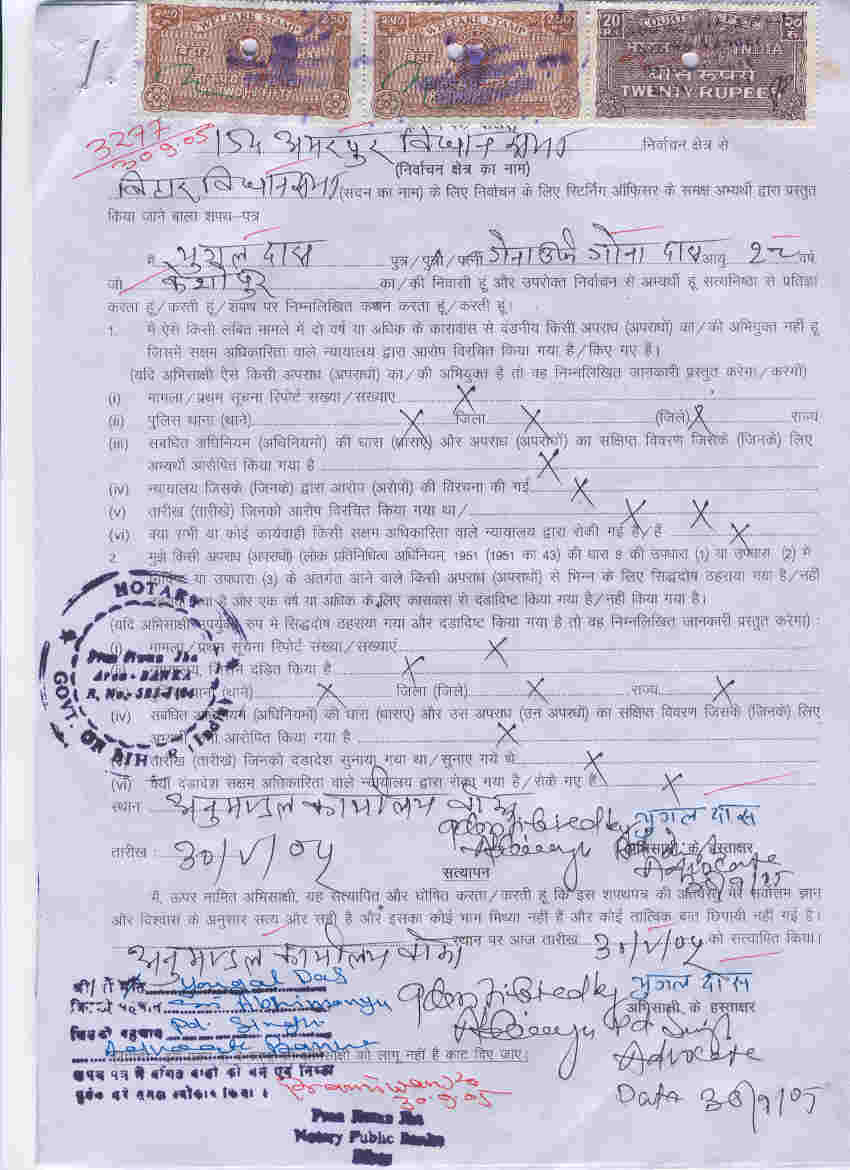 २५० WELFARE STAMP 2.50
बिहार
२५० WELFARE STAMP 2.50
20 COURT FEE २० रु.
भारत INDIA
बीस रूपये
TWENTY RUPEES
3297
30.9.05
154 अमरपुर विधान सभा निर्वाचन क्षेत्र से
(निर्वाचन क्षेत्र का नाम)
बिहार विधान सभा (सदन का नाम) के लिए निर्वाचन के लिए रिटर्निग ऑफिसर के समक्ष अभ्यर्थी द्वारा प्रस्तुत
किया जाने बाला शपथ-पत्र
में भुगल दास पुत्र/पुत्री/पत्नी गेना उर्फ गोना दास आयु वर्ष
जो केशोपुर का/की निवासी हूं और उपरोक्त निर्वाचन से अभ्यर्थी हूं सत्यनिष्ठा से प्रतिज्ञा
करता हूं/करती हूं/शपथ पर निम्नलिखित कथन करता हूं/करती हूं।
1. में ऐसे किसी लंबित मामले में दो वर्ष या अधिक के कारावास से दंडनीय किसी अपराध (अपराधों) का/की अभियुक्त नहीं हूं
जिसमें सक्षम अधिकारिता वाले न्यायालय द्वारा आरोप विरचित किया गया है/किए गए है।
(यदि अभिसाक्षी ऐसे किसी अपराध (अपराधों) का/की अभियुक्त है तो वह निम्नलिखित जानकारी प्रस्तुत करेगा/करेगी)
(i) मामला/प्रथम सूचना रिपोर्ट संख्या/संख्याएं X
(ii) पुलिस थाना (थाने) X जिला X (जिले) X राज्य
(iii) संबंधित अधिनियम (अधिनियमों) की धारा (धाराएं) और अपराध (अपराधों) का संक्षिप्त विवरण जिसके (जिनके) लिए
अभ्यर्थी आरोपित किया गया है X
(iv) न्यायालय जिसके (जिनके) द्वारा आरोप (अरोपों) की विरचना की गई X
(v) तारीख (तारीखें) जिनको आरोप विरचित किया गया था/ X X
(vi) क्या सभी या कोई कार्यवाही किसी सक्षम अधिकारिता वाले न्यायालय द्वारा रोकी गई है/हैं X
2. मुझे किसी अपराध (अपराधों) (लोक प्रतिनिधित्व अधिनियम, 1951 (1951 का 43) की धारा 8 की उपधारा (1) या उपधारा (2) में
या उपधारा (3) के अंतर्गत आने वाले किसी अपराध (अपराधों) से भिन्न के लिए सिद्धदोष ठहराया गया है/नहीं
गया है और एक वर्ष या अधिक के लिए कारावास से दंडादिष्ट किया गया है/नहीं किया गया है।
(यदि अभिसाक्षी उपर्युक्त रुप में सिद्धदोष ठहराया गया और दंडादिष्ट किया गया है तो वह निम्नलिखित जानकारी प्रस्तुत करेगा) :
(i) मामला/प्रथम सूचना रिपोर्ट संख्या/संख्याएं X
न्यायालय, जिसने दंडित किया है X
थाना (थाने) X जिला (जिले) X राज्य X
(iv) संबंधित अधिनियम (अधिनियमों) की धारा (धाराएं) और उस अपराध (उन अपराधों) का संक्षिप्त विवरण जिसके (जिनके) लिए
आरोपित किया गया है X
तारीख (तारीखें) जिनको दंडादेश सुनाया गया था/सुनाए गये थे X
(vi) क्या दंडादेश सक्षम अधिकारिता वाले न्यायालय द्वारा रोका गया है/रोके गए है X
NOTARY
Pran Jiwan Jha
Area - BANKA
GOVT. OF BIHAR
स्थान अनुमण्डल कार्यालय बांका
Identified by
भुगल दास
अभिसाक्षी, के हस्ताक्षर
Advocate
30/9/05
तारीख : 30/V/05
सत्यापन
में, ऊपर नामित अभिसाक्षी, यह सत्यापित और घोषित करता/करती हूं कि इस शपथपत्र की अंतर्वस्तु मेरे सर्वोत्तम ज्ञान
और विश्वास के अनुसार सत्य और सही है और इसका कोई भाग मिथ्या नहीं है और कोई तात्विक बात छिपायी नहीं गई है।
अनुमाण्डल कार्यालय बांका स्थान पर आज तारीख 30/V/05 को सत्यापित किया।
Yougal Das
Sri Abhimanyu
Pd. Singh
Advocate Banka
Identified by
भुगल दास
अभिसाक्षी, के हस्ताक्षर
Pd Singh
Advocate
Date 30/9/05
को लागू नहीं है काट दिए जाए।
30.9.05
Pran Jiwan Jha
Notary Public Banka
Bihar